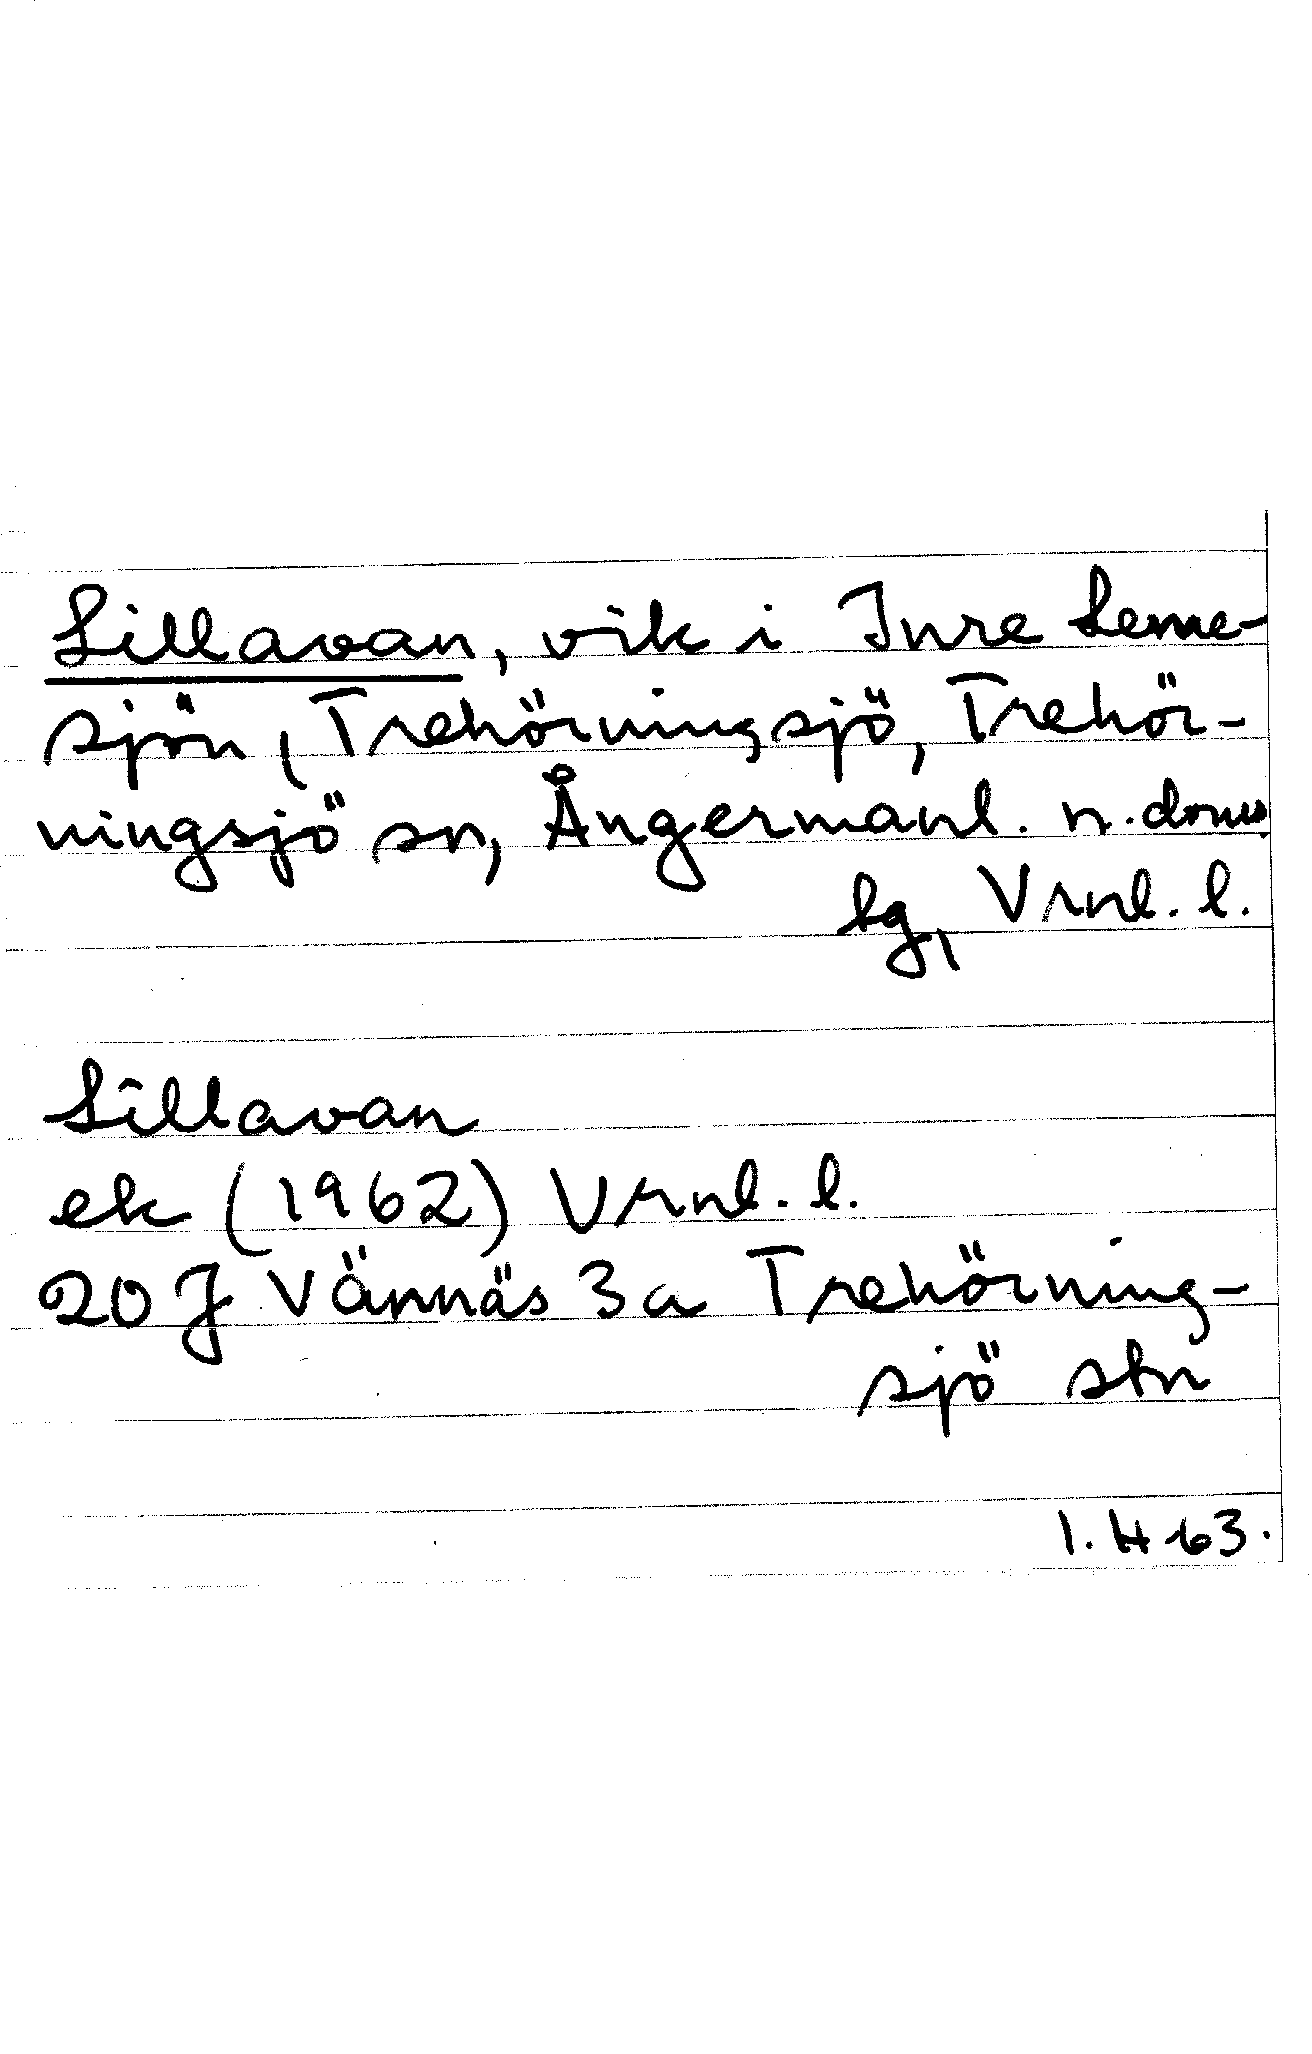 Lillavan, vik i Inre Leme-
sjön, Trehörningsjö, Trehör-
ningsjö sn, Ångermanl. n. doms.
lg, Vrnl. l.
Lillavan
ek (1962) Vrnl. l.
20 J Vännäs 3 a Trehörning-
sjö stn
I. H 63.